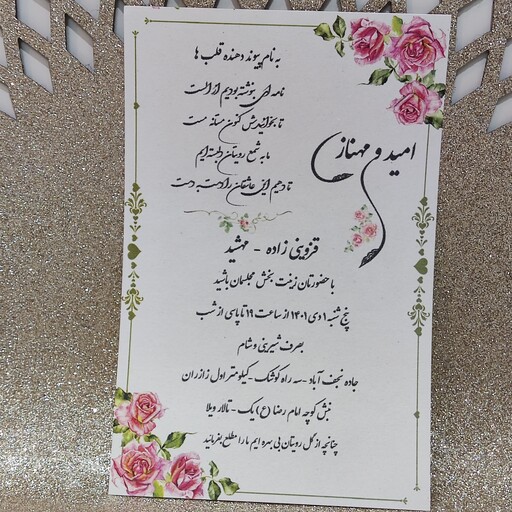 به نام پیوند دهنده قلب ها
نامه ای بنوشته بودیم از الست
تا بخوانیدش کنون مستانه مست
ما به شمع رویتان دلبسته ایم
تا دهیم این عاشقان را دست به دست
امید و مهناز
قزوینی زاده - مهشید
با حضورتان زینت بخش مجلسمان باشید
پنج شنبه ۱ دی ۱۴۰۱ از ساعت ۱۹ تا پاسی از شب
بصرف شیرینی و شام
جاده نجف آباد - سه راه کوشک - کیلومتر اول زازران
نبش کوچه امام رضا (ع) یک - تالار ویلا
چنانچه از گل رویتان بی بهره ایم ما را مطلع بفرمائید